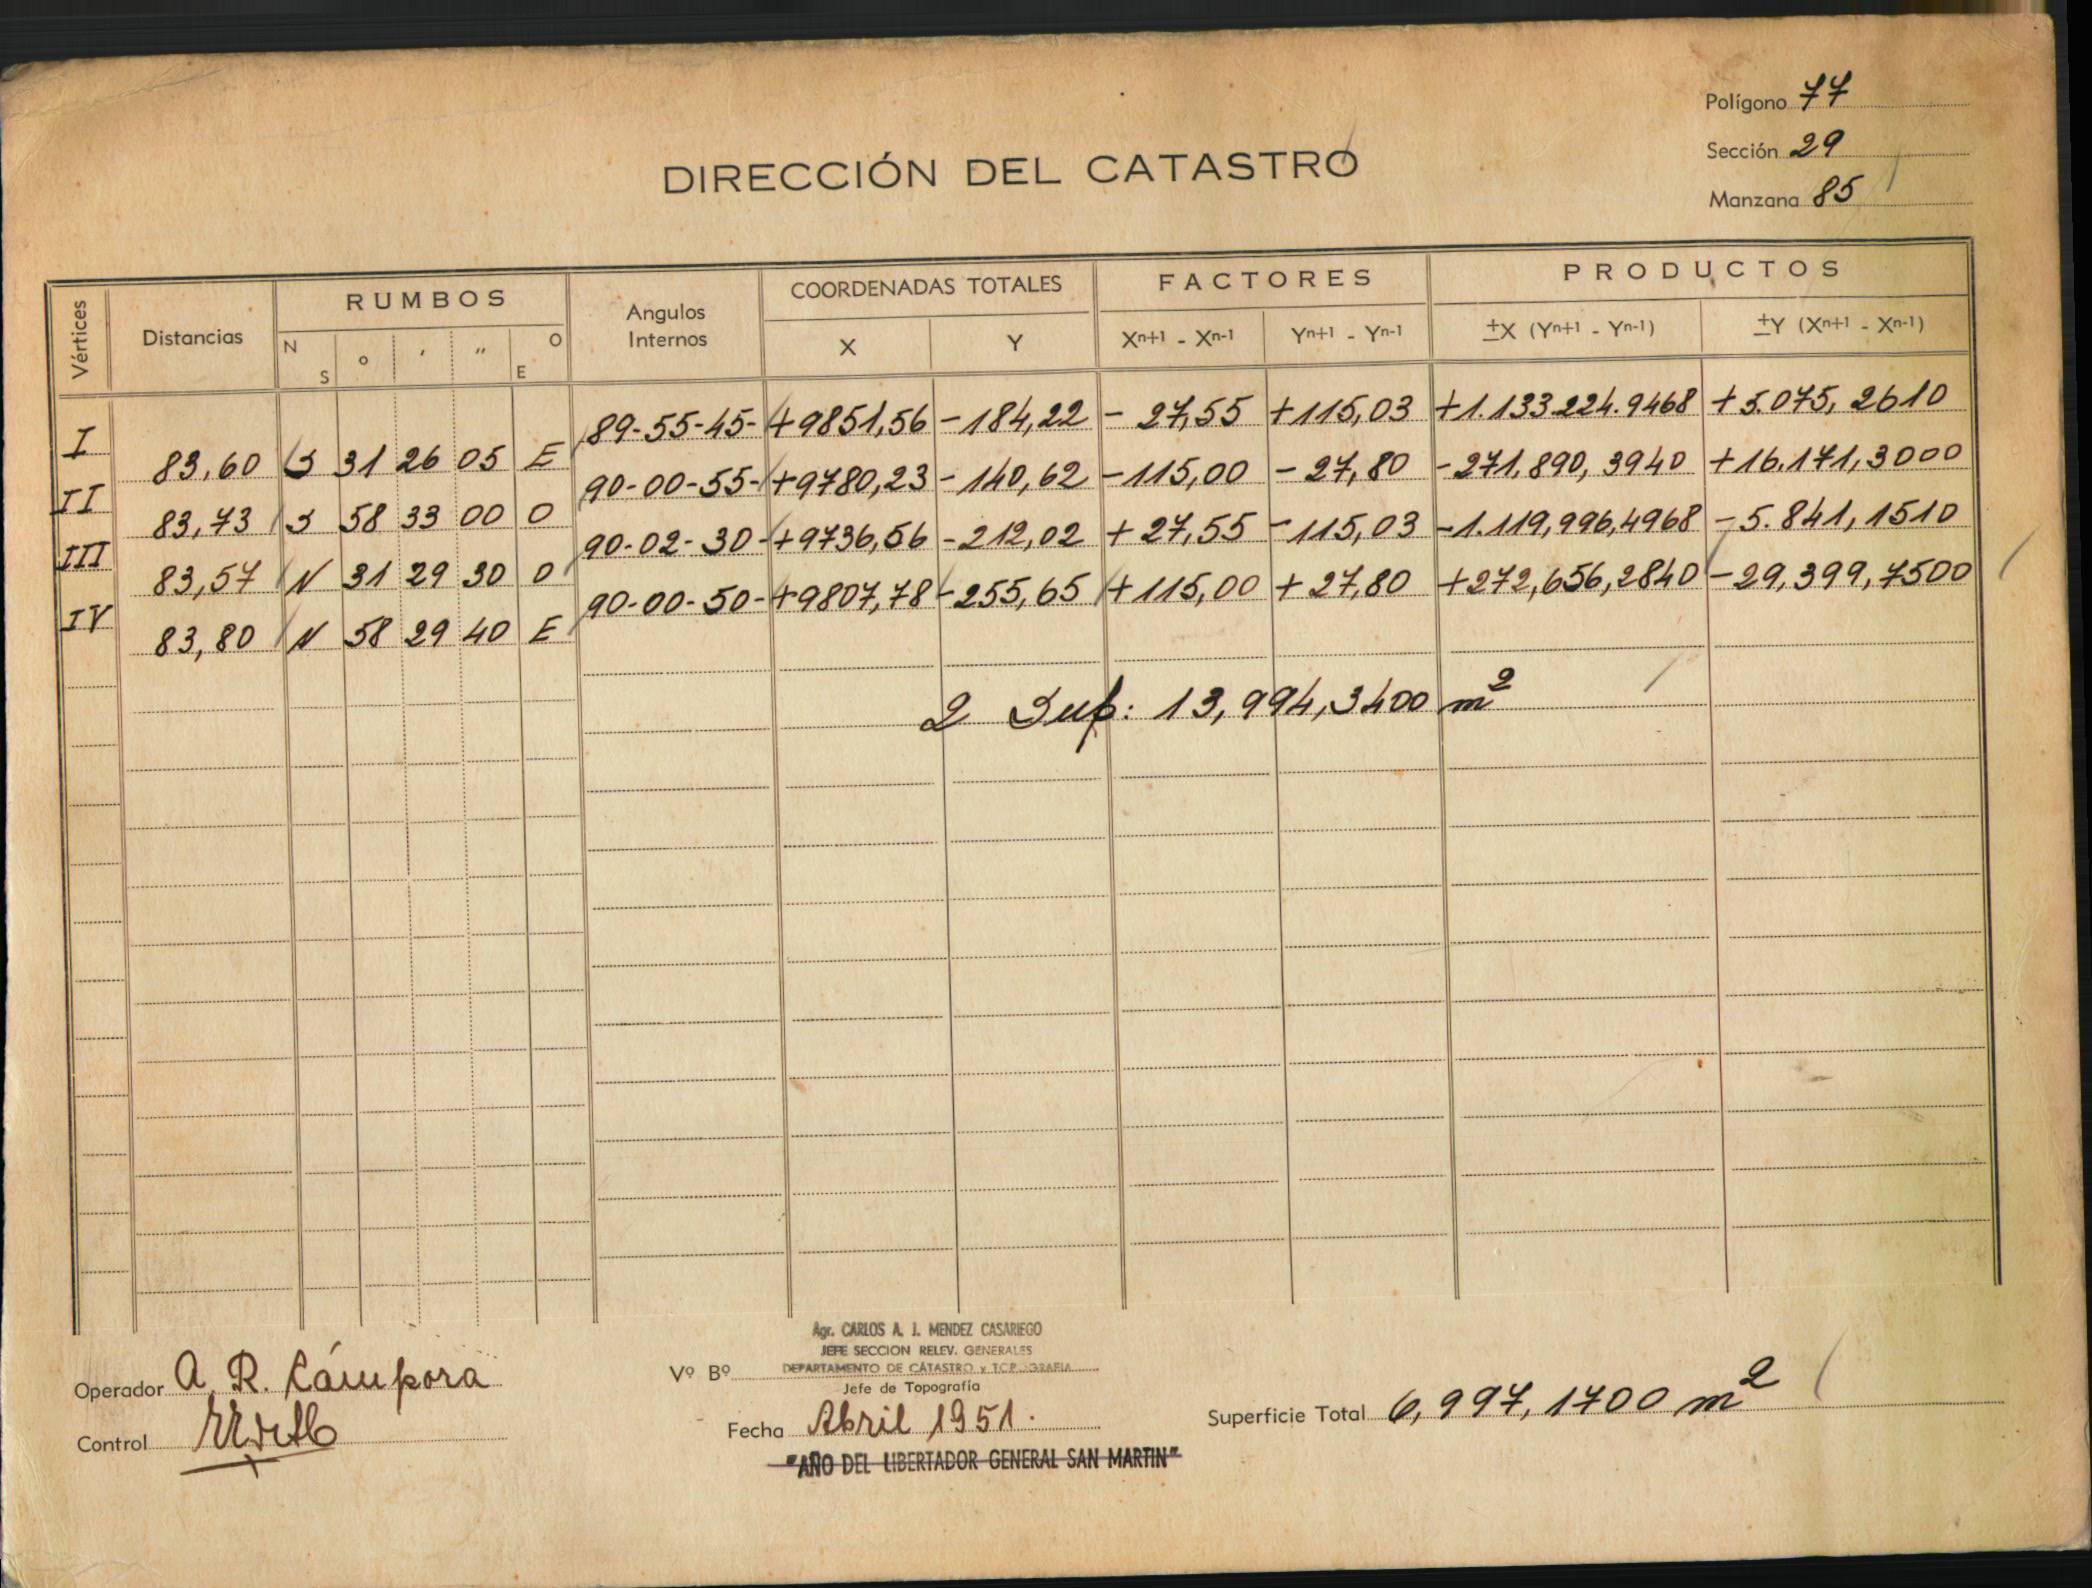 Polígono 77
Sección 29
Manzana 85
DIRECCIÓN DEL CATASTRO
Vértices Distancias RUMBOS Angulos Internos COORDENADAS TOTALES FACTORES PRODUCTOS
N S o ' " O E X Y Xn+1 - Xn-1 Yn+1 - Yn-1 ±X (Yn+1 - Yn-1) ±Y (Xn+1 - Xn-1)
I 89-55-45- +9851,56 -184,22 - 27,55 +115,03 +1.133.224.9468 +5.075,2610
83,60 S 31 26 05 E
II 90-00-55- +9780,23 -140,62 -115,00 -27,80 -271.890,3940 +16.171,3000
83,73 S 58 33 00 O
III 90-02-30- +9736,56 -212,02 +27,55 -115,03 -1.119,996,4968 -5.841,1510
83,57 N 31 29 30 O
IV 90-00-50- +9807,78 -255,65 +115,00 +27,80 +272,656,2840 -29,399,7500
83,80 N 58 29 40 E
2 Sup: 13,994,3400 m2
Agr. CARLOS A. J. MENDEZ CASARIEGO
JEFE SECCION RELEV. GENERALES
Vº Bº DEPARTAMENTO DE CATASTRO y TOPOGRAFIA
Jefe de Topografía
Operador A. R. Cámpora
Fecha Abril 1951.
Superficie Total 6,997,1700 m2
Control
"AÑO DEL LIBERTADOR GENERAL SAN MARTIN"